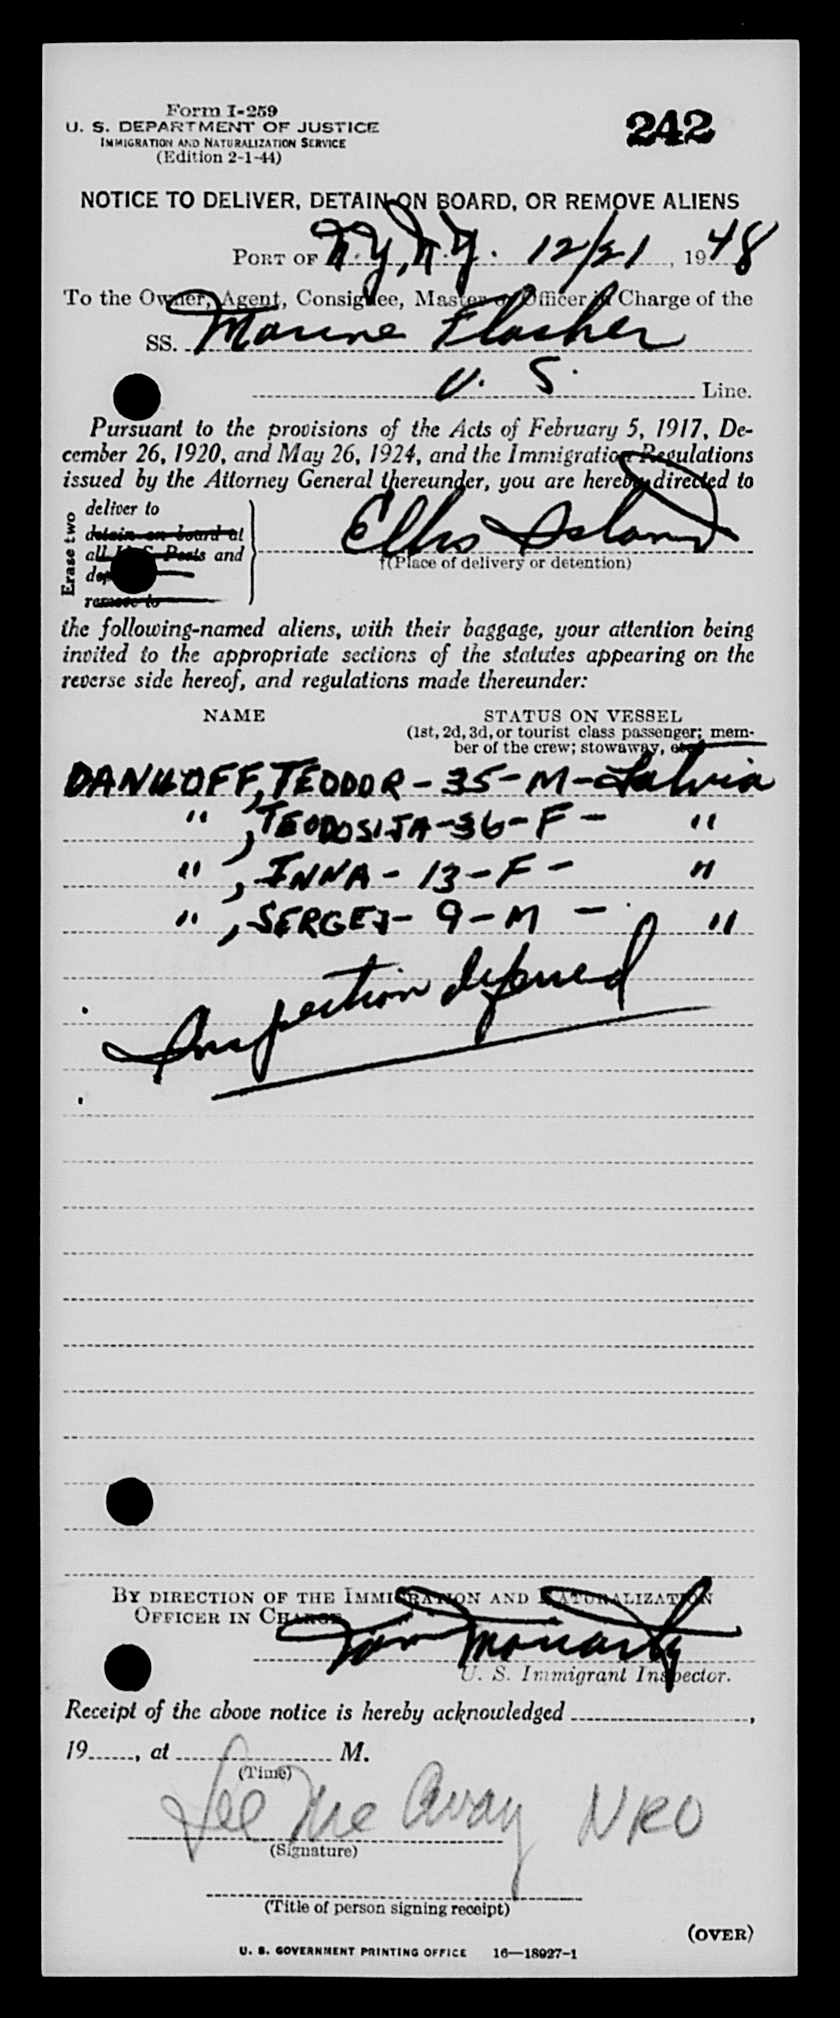 Form I-259
U. S. DEPARTMENT OF JUSTICE
IMMIGRATION AND NATURALIZATION SERVICE
(Edition 2-1-44)
242
NOTICE TO DELIVER, DETAIN ON BOARD, OR REMOVE ALIENS
PORT OF N.Y., N.Y. 12/21, 1948
To the Owner, Agent, Consignee, Master or Officer in Charge of the
SS. Marine Flasher
U. S. Line.
Pursuant to the provisions of the Acts of February 5, 1917, De-
cember 26, 1920, and May 26, 1924, and the Immigration Regulations
issued by the Attorney General thereunder, you are hereby directed to
Erase two
deliver to
detain on board at
all U. S. Ports and
remove to
Ellis Island
†(Place of delivery or detention)
the following-named aliens, with their baggage, your attention being
invited to the appropriate sections of the statutes appearing on the
reverse side hereof, and regulations made thereunder:
NAME STATUS ON VESSEL
(1st, 2d, 3d, or tourist class passenger; mem-
ber of the crew; stowaway, etc.)
DANILOFF, TEODOR - 35 - M - Latvia
" , TEODOSIJA - 36 - F - "
" , INNA - 13 - F - "
" , SERGEJ - 9 - M - "
Inspection deferred
BY DIRECTION OF THE IMMIGRATION AND NATURALIZATION
OFFICER IN CHARGE
Tom Moriarty
U. S. Immigrant Inspector.
Receipt of the above notice is hereby acknowledged ,
19 , at M.
(Time)
Away NRO
(Signature)
(Title of person signing receipt)
(OVER)
U. S. GOVERNMENT PRINTING OFFICE 16—18927-1